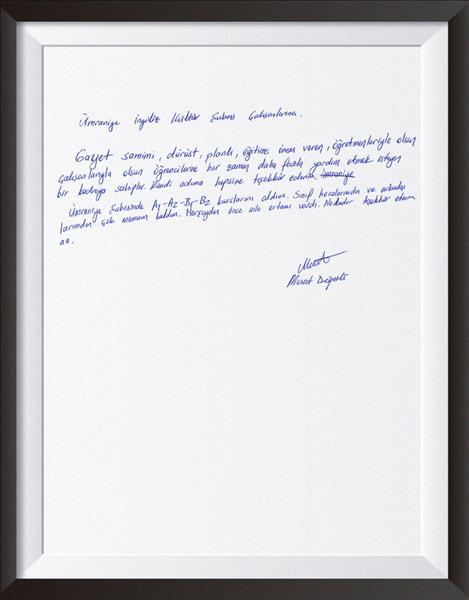 Ümraniye İngiliz Kültür Şubesi Çalışanlarına.
Gayet samimi, dürüst, planlı, eğitime önem veren, öğretmenleriyle olsun
çalışanlarıyla olsun öğrencilerine her zaman daha fazla yardım etmek isteyen
bir kadroya sahipler. Kendi adıma hepsine teşekkür ederim. Ümraniye
Ümraniye Şubesinde A1-A2-B1-B2 kurslarını aldım. Sınıf hocalarımdan ve arkadaş
larımdan çok memnun kaldım. Herşeyden önce aile ortamı vardı. Nekadar teşekkür etsem
az.
Mesut